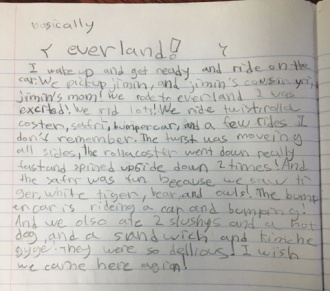 basically
everland!
I wake up and get ready and ride on the
car. We pick up jimin, and jimin's cousin yuri,
jimin's mom! we rode to everland I was
exerted! we rid lots! We ride twist, rolla
coster, safri, bumper car, and a few rides I
don't remember. The twist was moveing
all sides, the rollacoster went down really
fast and spined upside down 2 times! And
the safri was fun because we saw ti
ger, white tiger, bear, and owls! The bump
er car is rideing a car and bumping!
And we also ate 2 slushys and a hot
dog, and a sandwich and kimche
They were so dellious! I wish
we came here again!